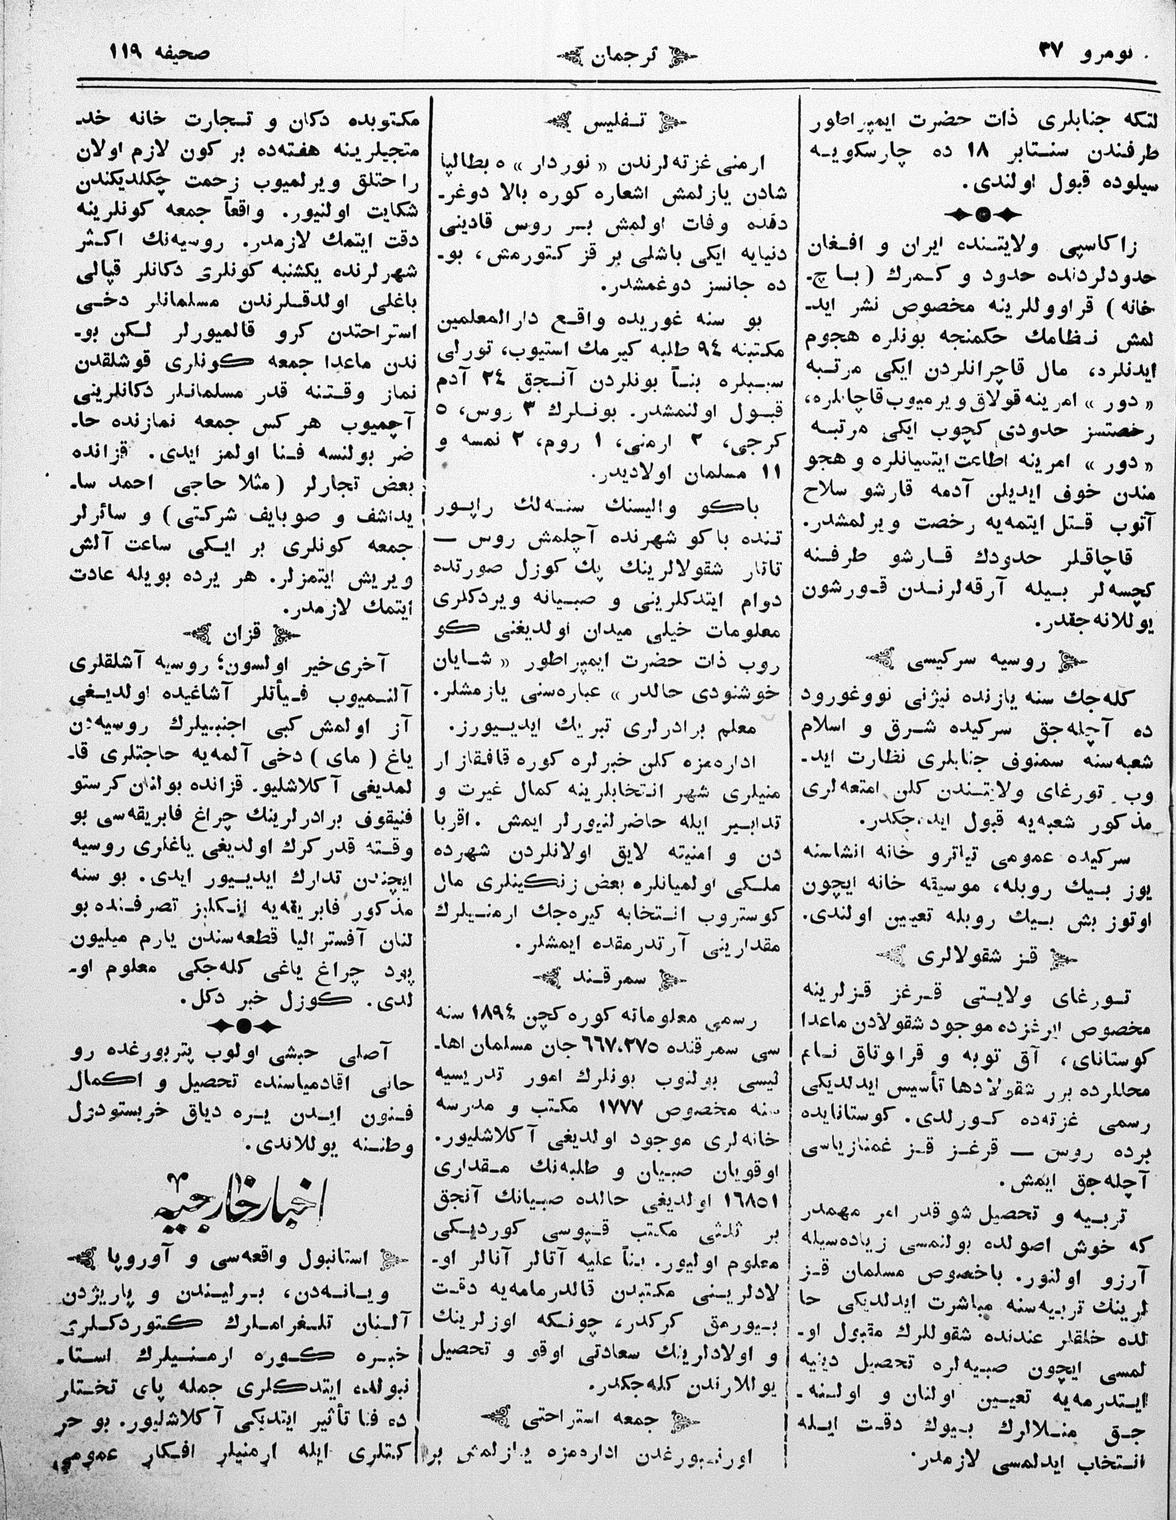 نومرو ٣٧
ترجمان
صحيفه ١١٩
لتكه جنابلری ذات حضرت ايمپراطور
طرفندن سنـتابر ١٨ ده چارسكويـه
سيلوده قبول اولندی.
زاكاسپی ولايتـنده ايران و افـغان
حدودلردنده حدود و كـمرك ( بـاچ‌ـ
خانه ) قراووللرينه مخصوص نشر ايد‌ـ
لمش نـظامك حكمنجه بونلره هجوم
ايدنلرد، مال قاچرانلردن ايكی مرتـبه
« دور » امرينه قولاق ويرميوب قاچانلره،
رخصتسز حدودی كچوب ايكی مرتبـه
« دور » امرينه اطاعت ايتميانلره و هجو
مندن خوف ايديلن آدمه قارشو سلاح
آتوب قـتل ايتمه‌يه رخصت ويرلمشدر.
قاچاقـلر حدودك قـارشو طرفـنه
كچسه‌لر بـيله آرقه‌لرنـدن قـورشون
يوللانه‌جقدر.
روسيه سركيسی
كله‌جك سنه يازنده نيژنی نووغورود
ده آچله‌جق سركيده شـرق و اسلام
شعبه‌سنه سمنوف جنابلری نظارت ايد‌ـ
وب تورغای ولايتـندن كلن امتعه‌لری
مذكور شعبه‌يه قبول ايده‌جكدر.
سركيده عمومی تياترو خانه انشاسنه
يوز بـيك روبله، موسيقه خانه ايچون
اوتوز بش بـيك روبله تعيين اولندی.
قـز شقولالری
تـورغای ولايـتی قـرغز قـزلرينه
مخصوص ايرغزده موجود شقولادن ماعدا
كوستانای، آق توبه و قراوتاق نـام
محللرده برر شقولادها تأسيس ايدلديكی
رسمی غزته‌ده كـورلدی. كوستانايده
برده روس — قرغـز قـز غمنازياسی
آچله‌جق ايمش.
تربـيه و تحصيل شو قدر امر مهمدر
كه خوش اصولده بولنمسی زياده‌سيله
آرزو اولنور. باخصوص مسلمان قـز
لرينك تربيه‌سنه مباشرت ايدلديكی حا
لده خلقلر عندنده شقوللرك مقبول او‌ـ
لمسی ايچون صبيه‌لره تحصيل دينيه
ايـتدرمه‌يه تعيـين اولنان و اولـنه‌ـ
جـق منـلالرك بـيوك دقـت ايـله
انـتخاب ايدلمسی لازمدر.
تـفليس
ارمنی غزته‌لرندن « نوردار » ه بطالپا
شادن يازلمش اشعاره كوره بالا دوغر‌ـ
دقده وفات اولمش بـر روس قادينی
دنيايه ايكی باشلی بر قز كتورمش، بو‌ـ
ده جانسز دوغمشدر.
بو سنه غوريده واقـع دارالمعلمين
مكتبنه ٩٤ طلبه كيرمك استيوب، تورلی
سبـبلره بنـاً بونلردن آنـجق ٢٤ آدم
قبـول اولنمشدر. بونـلرك ٣ روس، ٥
كرجی، ٢ ارمنی، ١ روم، ٢ نمسه و
١١ مسلمان اولاديدر.
باكـو واليسنك سنـه‌لك راپـور
تـنده باكو شهرنده آچلمش روس —
تاتار شقولالرينك پك كوزل صورتده
دوام ايتدكلرينی و صبـيانه ويردكلری
معلومات خيلی ميدان اولديغنی كـو
روب ذات حضرت ايمپراطور « شـايان
خوشنودی حالدر » عباره‌سنی يازمشلر.
معلم برادرلری تبريك ايديـيورز.
اداره‌مزه كلن خبرلره كوره قافقاز ار
منيلری شهر انـتخابلرينه كمال غيرت و
تدابـير ايله حاضرلنيورلر ايمش. اقربا
دن و امنيته لايق اولانلردن شهرده
ملـكی اولميانلره بعض زنـكينلری مال
كوستروب انـتخابه كيره‌جك ارمنـيلرك
مقدارينی آرتدرمقده ايمشلر.
سمرقـند
رسمی معلوماته كوره كچن ١٨٩٤ سنه
سی سمرقنده ٦٦٧،٢٧٥ جان مسلمان اها‌ـ
ليسی بولنوب بونلرك امور تدريسيه
سنه مخصوص ١٧٧٧ مكتب و مدرسه
خانه‌لری موجود اولديغی آكلاشليور.
اوقويان صبـيان و طلبه‌نك مـقداری
١٦٨٥١ اولديغی حالده صبـيانك آنجق
بر ثلثی مكتب قـپوسی كورديـكی
معلوم اوليور. بنـاً عليه آتالر آنالر او‌ـ
لادلريـنی مكتبدن قالدرمامه‌يه دقـت
بـيورمق كركدر، چونـكه اوزلرينك
و اولادلرينك سعادتی اوقو و تحصيل
يوللارندن كله‌جكدر.
جمعه استراحتی
اورنـبورغدن اداره‌مزه يـازلمش بر
مكتوبده دكان و تـجارت خانه خد‌ـ
متجيلرينه هفته‌ده بر كون لازم اولان
راحتلق ويرلميوب زحمت چكلديكندن
شكايت اولنيور. واقعاً جمعه كونلرينه
دقت ايتمك لازمدر. روسيه‌نك اكـثر
شهرلرنده يكشنبه كونلری دكانلر قپالی
باغلی اولدقـلرندن مسلمانلر دخـی
استراحتدن كرو قالميورلر لـكن بو‌ـ
ندن ماعدا جمعه كـونلری قوشلقدن
نماز وقـتنه قدر مسلمانـلر دكانلرينی
آچميوب هركس جمعه نمازنده حا‌ـ
ضر بولنسه فـنا اولمز ايدی. قزانده
بعض تجارلر ( مثلا حاجی احمد سا‌ـ
يداشف و صوبايف شركتی ) و سائرلر
جمعه كونلری بر ايـكی ساعت آلش
ويريش ايتمزلر. هر يرده بويله عادت
ايتمك لازمدر.
قزان
آخری خير اولسون؛ روسيه آشلقلری
آلنـميوب فـيأتلر آشاغيده اولديـغی
آز اولمش كبی اجنبـيلرك روسيه‌دن
ياغ ( مای ) دخی آلمه‌يه حاجتلری قا‌ـ
لمديغی آكلاشليو. قزانده بولنان كرستو
فنيقوف برادرلرينك چراغ فابريقه‌سی بو
وقـته قدر كرك اولديغی ياغلری روسيه
ايچندن تدارك ايديـيور ايدی. بو سنه
مذكور فابريقه‌يه انـكليز تصرفـنده بو
لنان آفسترالیا قطعه‌سندن يارم ميليون
پود چراغ ياغی كله‌جكی معلوم او‌ـ
لدی. كوزل خبر دكل.
آصلی حبشی اولوب پتربورغده رو
حانی اقادمياسنده تحصيل و اكـمال
فـنون ايـدن يـره دياق خريستودول
وطنـنه يوللاندی.
اخبار خارجيه
استانبول واقعه‌سی و آوروپا
ويـانـه‌دن، بـرليـندن و پاريژدن
آلـنان تلـغرامـلرك كـتوردكـلری
خبـره كـوره ارمـنـيلرك استـا‌ـ
نبولده ايتدكلری جمله پای تختلر
ده فنا تأثير ايتديكی آكلاشليور. بو حر
كتلری ايله ارمنيلر افـكار عمومی